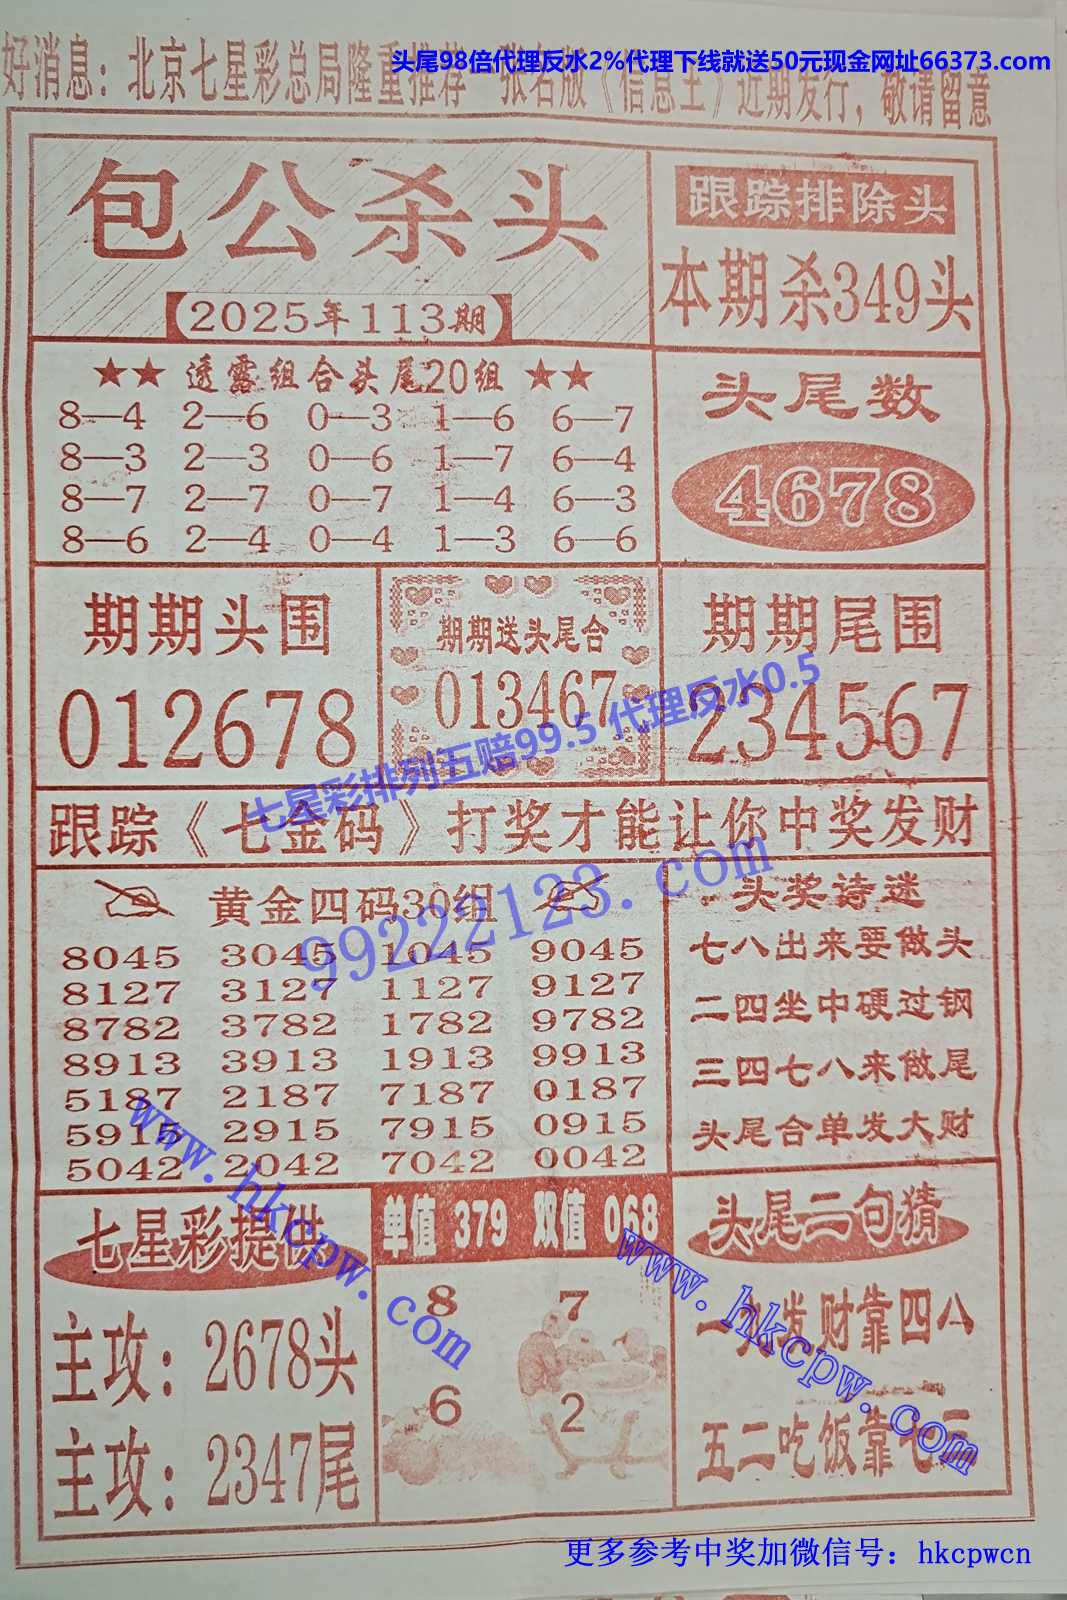 头尾98倍代理反水2%代理下线就送50元现金网址66373.com
好消息：北京七星彩总局隆重推荐一张名版《信息王》近期发行，敬请留意
包公杀头
2025年113期
跟踪排除头
本期杀349头
★★ 透露组合头尾20组 ★★
8—4 2—6 0—3 1—6 6—7
8—3 2—3 0—6 1—7 6—4
8—7 2—7 0—7 1—4 6—3
8—6 2—4 0—4 1—3 6—6
头尾数
4678
期期头围
012678
期期送头尾合
013467
期期尾围
234567
七星彩排列五赔99.5 代理反水0.5
跟踪《七金码》打奖才能让你中奖发财
99222123.com
黄金四码30组
8045 3045 1045 9045
8127 3127 1127 9127
8782 3782 1782 9782
8913 3913 1913 9913
5187 2187 7187 0187
5915 2915 7915 0915
5042 2042 7042 0042
头奖诗迷
七八出来要做头
二四坐中硬过钢
三四七八来做尾
头尾合单发大财
七星彩提供
主攻：2678头
主攻：2347尾
www.hkcpw.com
单值 379 双值 068
8 7
6 2
头尾二句猜
一九发财靠四八
五二吃饭靠七三
www.hkcpw.com
更多参考中奖加微信号：hkcpwcn